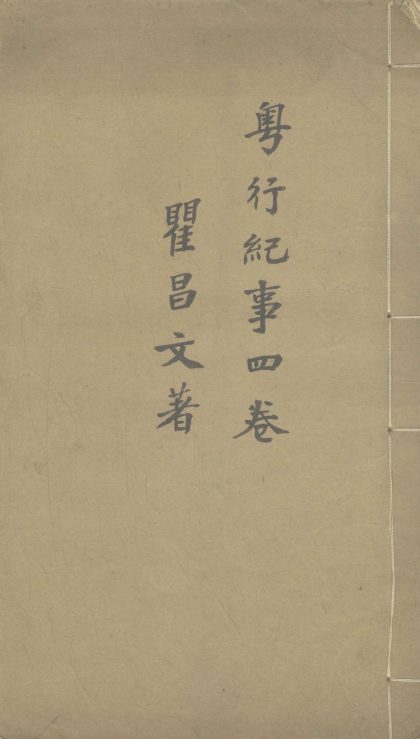 粤行紀事四卷
瞿昌文著